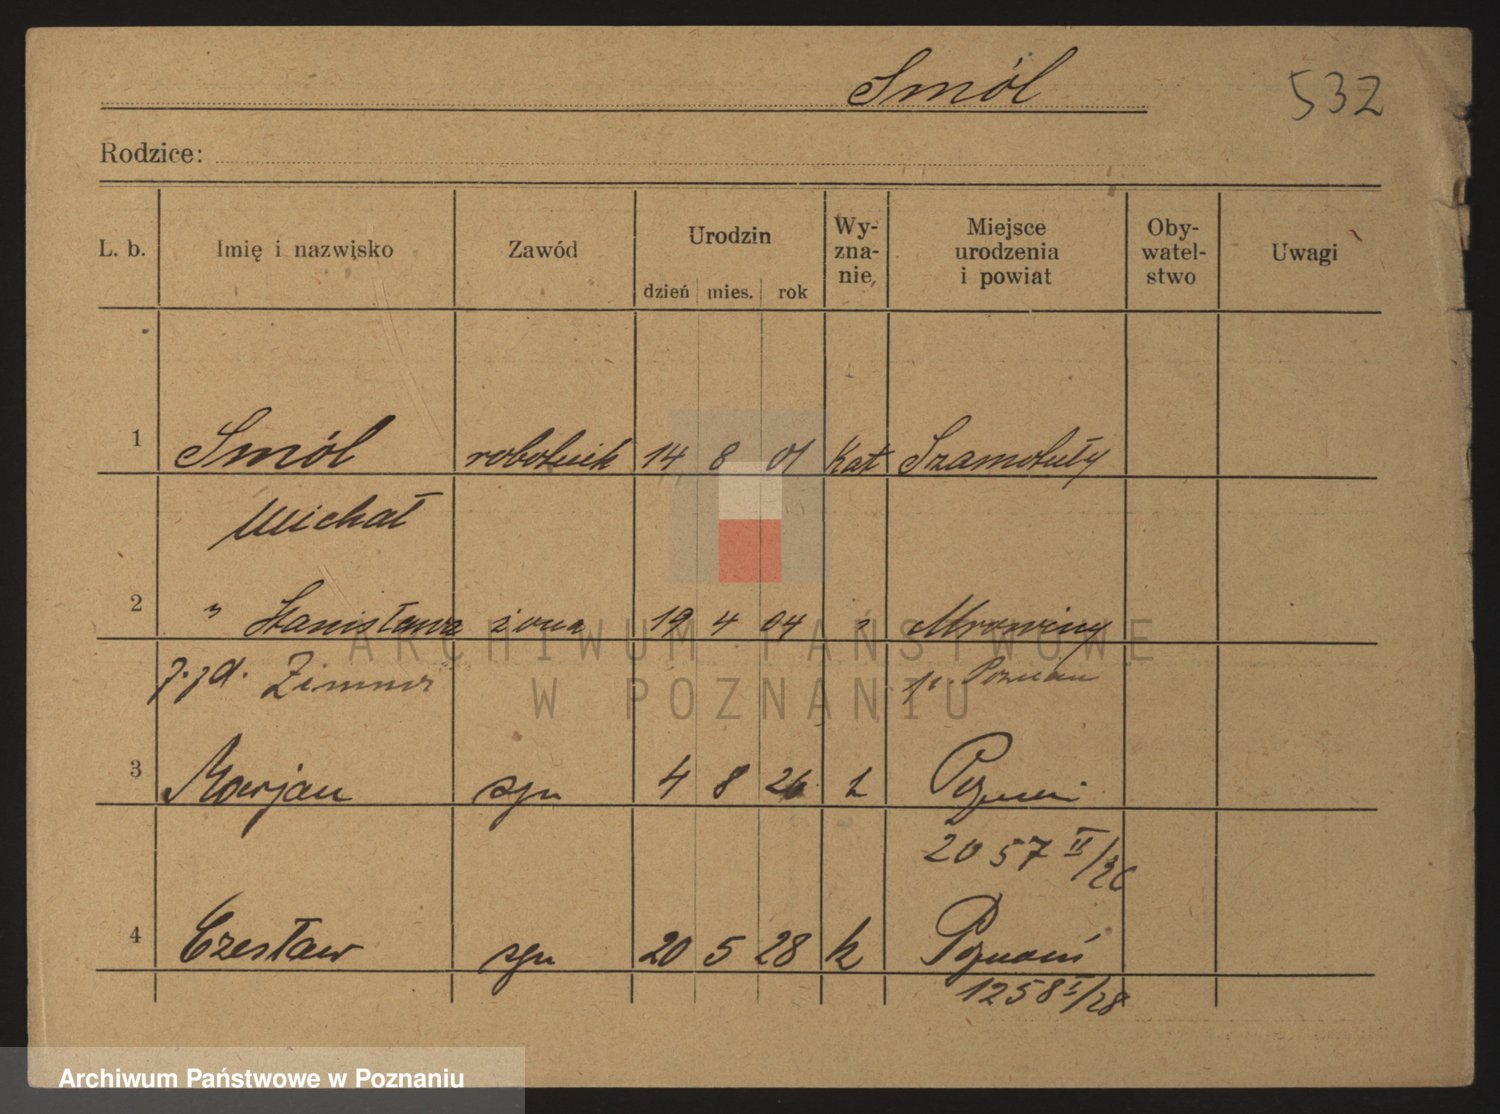 Smól 532
Rodzice:
L. b. Imię i nazwisko Zawód Urodzin Wy-zna-nie, Miejsce urodzenia i powiat Oby-watel-stwo Uwagi
dzień mies. rok
1 Smól robotnik 14 8 01 Kat Szamotuły
Michał
2 " Stanisława żona 19 4 04 Mrowiny
ARCHIWUM PAŃSTWOWE
z d. Zimna p. Poznań
W POZNANIU
3 Marjan syn 4 8 26 Poznań
2057 II/26
4 Czesław syn 20 5 28 k Poznań
1258 I/28
Archiwum Państwowe w Poznaniu